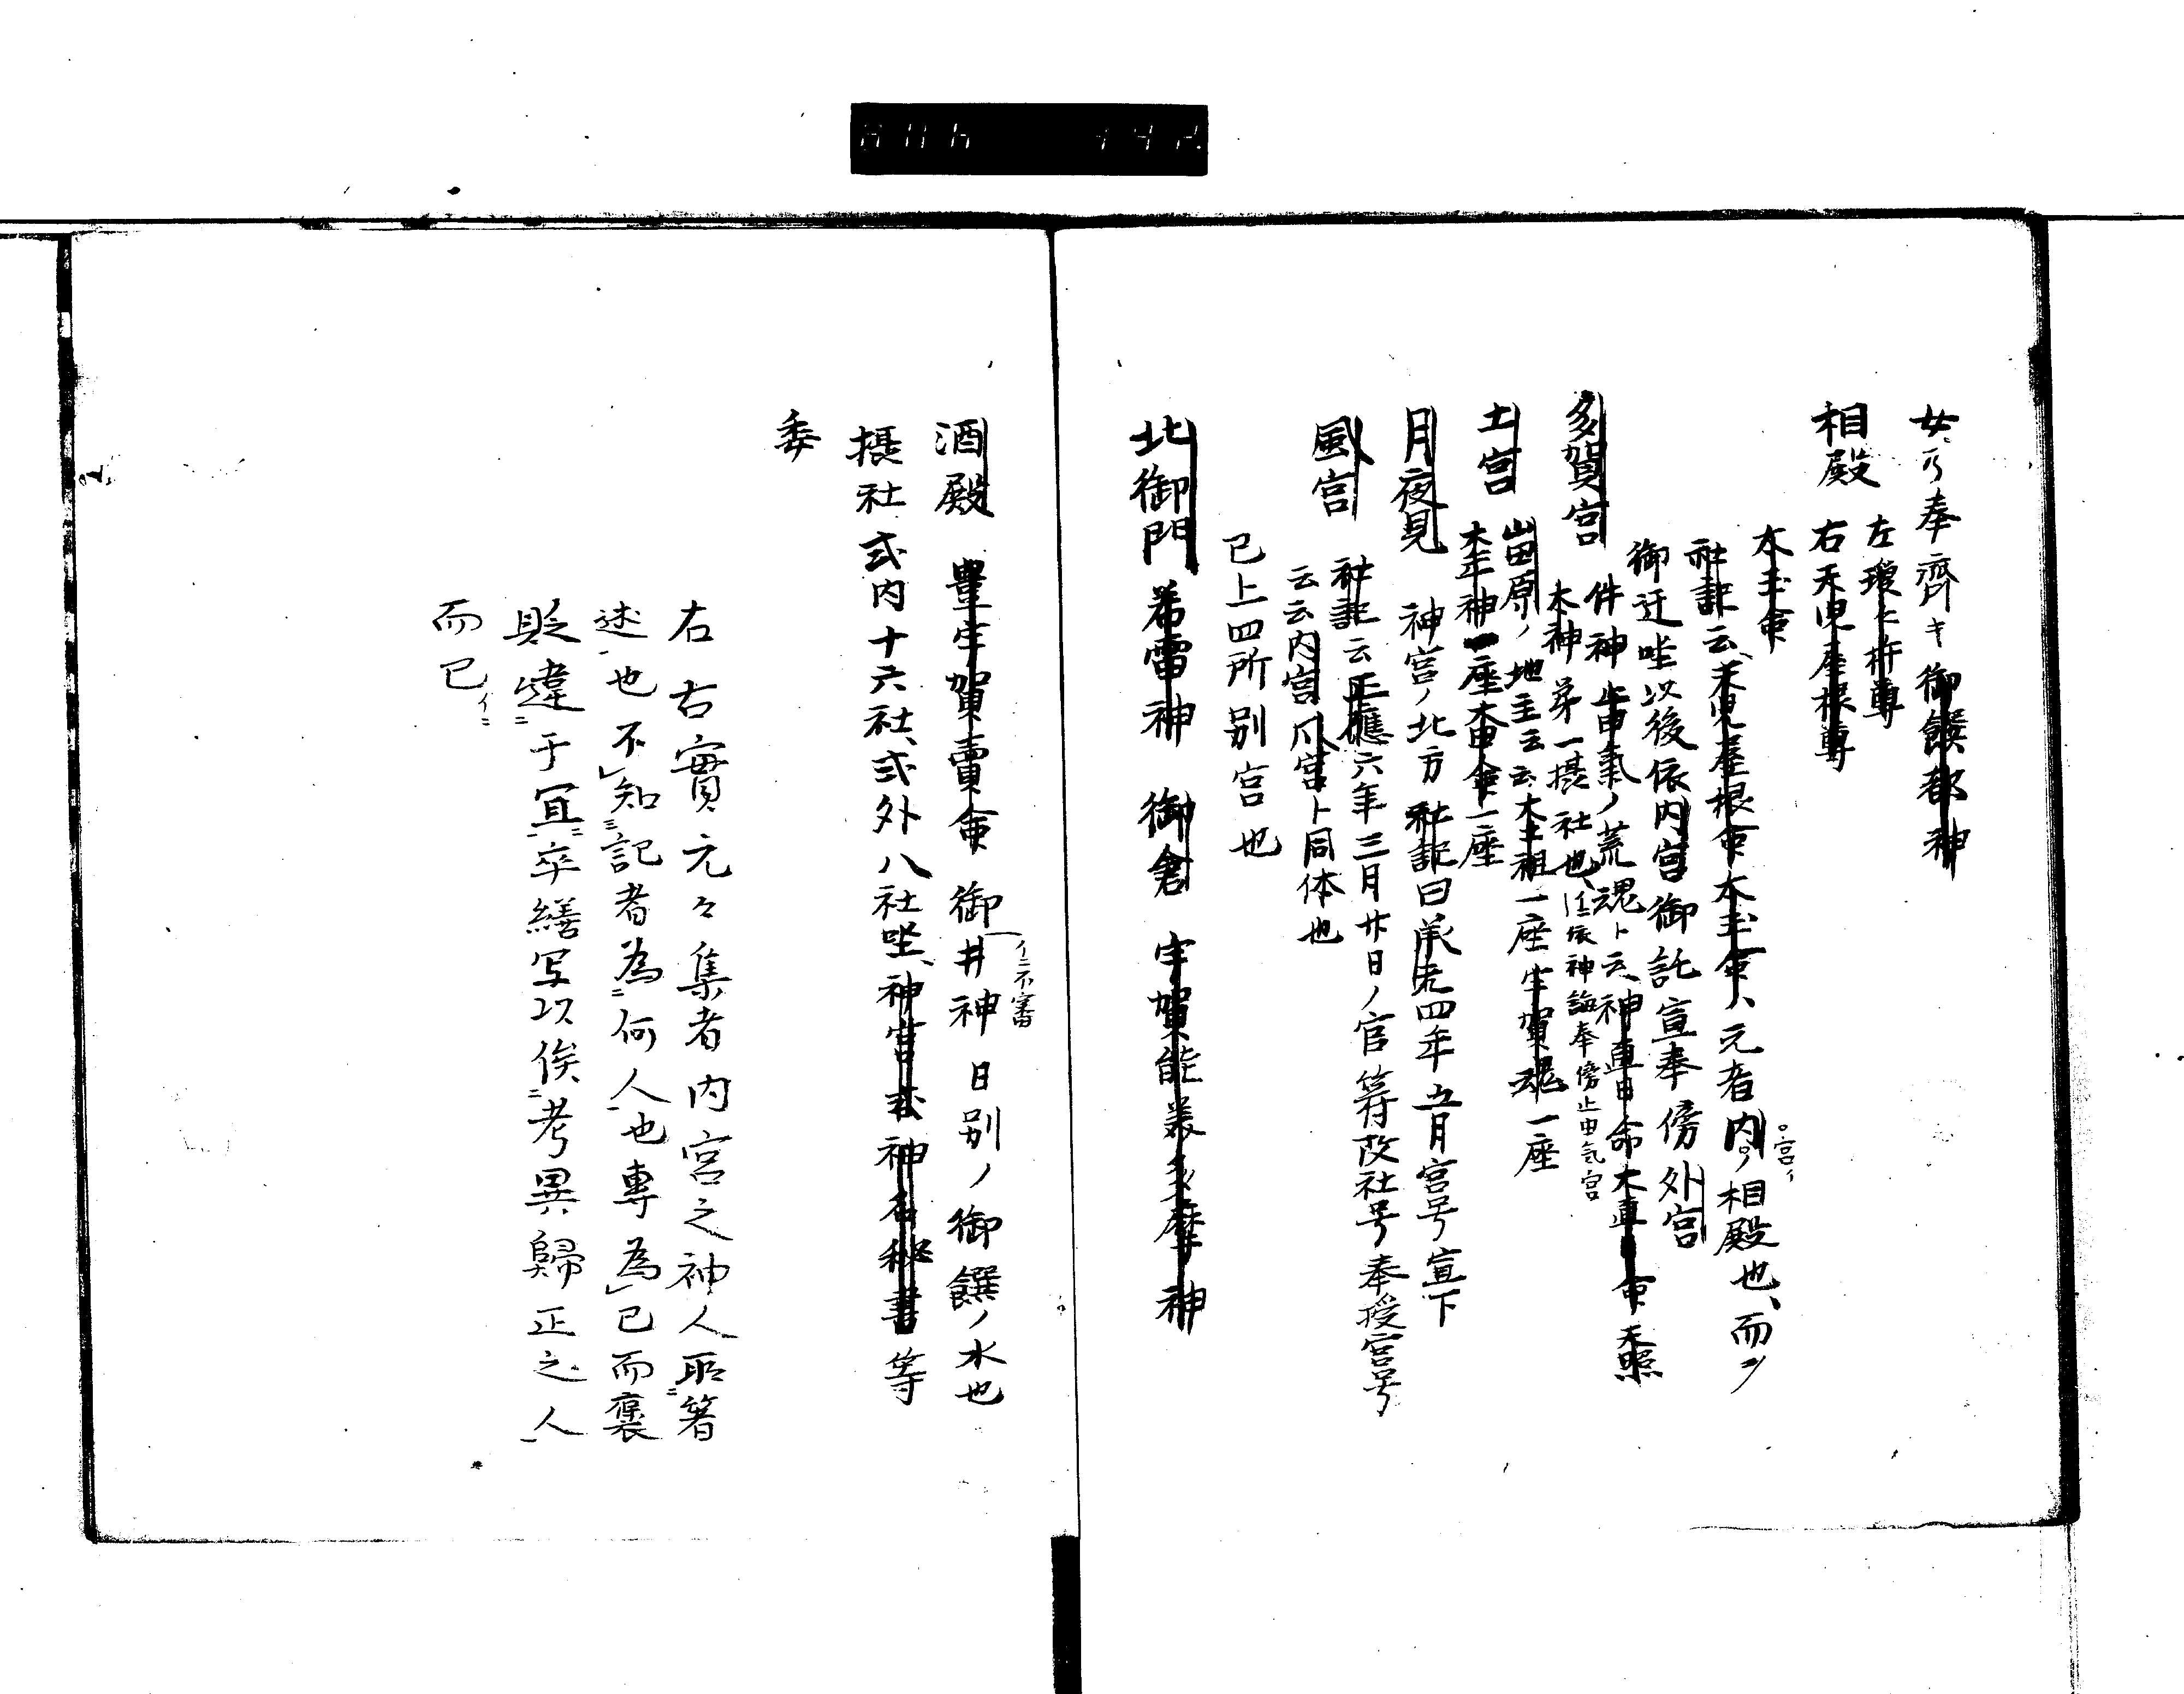 女乃奉齋キ御饌都神
相殿 左瓊々杵尊
右天児屋根尊
太玉命
社記云、天児屋根命太玉命ハ元者内ノ相殿也、而ヲ
宮イ
御迁坐以後依内宮御託宣奉傍外宮
多賀宮 件神止由氣ノ荒魂ト云、神直日命大直日命 天照
太神第一摂社也、任依神誨奉傍止由気宮
土宮 山田原ノ地主云云大土祖一座宇賀魂一座
大年神一座
月夜見 神宮ノ北方社記曰承元四年五月宮号宣下
風宮 社記云正應六年三月廿日ノ官符改社号奉授宮号
云云内宮風宮ト同体也
已上四所別宮也
北御門 若雷神 御倉 宇賀能美多摩神
酒殿 豊宇賀賣命 御井神 日別ノ御饌ノ水也
イニ不審
摂社式内十六社、式外八社坐、神宮 神名秘書等
委
右右實元々集者内宮之神人所著
述也不知記者為何人也專為已而褒
貶違于冝卒繕写以俟考異歸正之人
而已イニ